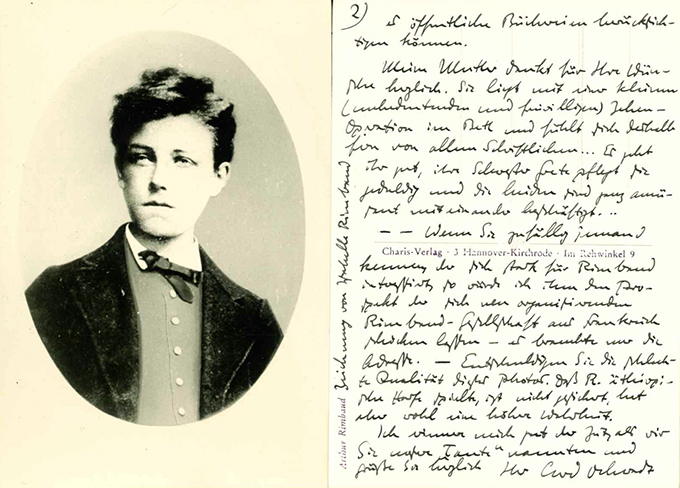 2) es öffentliche Büchereien berücksich-
tigen können.
Meine Mutter dankt für Ihre Wün-
sche herzlich. Sie liegt mit einer kleinen
(unbedeutenden und freiwilligen) Zehen-
Operation im Bett und fühlt sich deshalb
fern von allem Schriftlichen... Es geht
ihr gut, ihre Schwester Grete pflegt sie
geduldig und die beiden sind ganz amü-
sant miteinander beschäftigt...
– – Wenn Sie zufällig jemand
Charis-Verlag · 3 Hannover-Kirchrode · Im Rehwinkel 9
kennen der sich stark für Rimbaud
interessiert, so würde ich ihm den Pro-
spekt der sich neu organisierenden
Rimbaud-Gesellschaft aus Frankreich
schicken lassen – es brauchte nur die
Adresse. – Entschuldigen Sie die schlech-
te Qualität dieses Photos. Daß R. äthiopi-
sche Harfe spielte, ist nicht gesichert, hat
aber wohl eine höhere Wahrheit.
Ich erinnere mich gut der Zeit, als wir
Sie unsere "Tante" nannten und
grüße Sie herzlich Ihr
Arthur Rimbaud Zeichnung von Isabelle Rimbaud